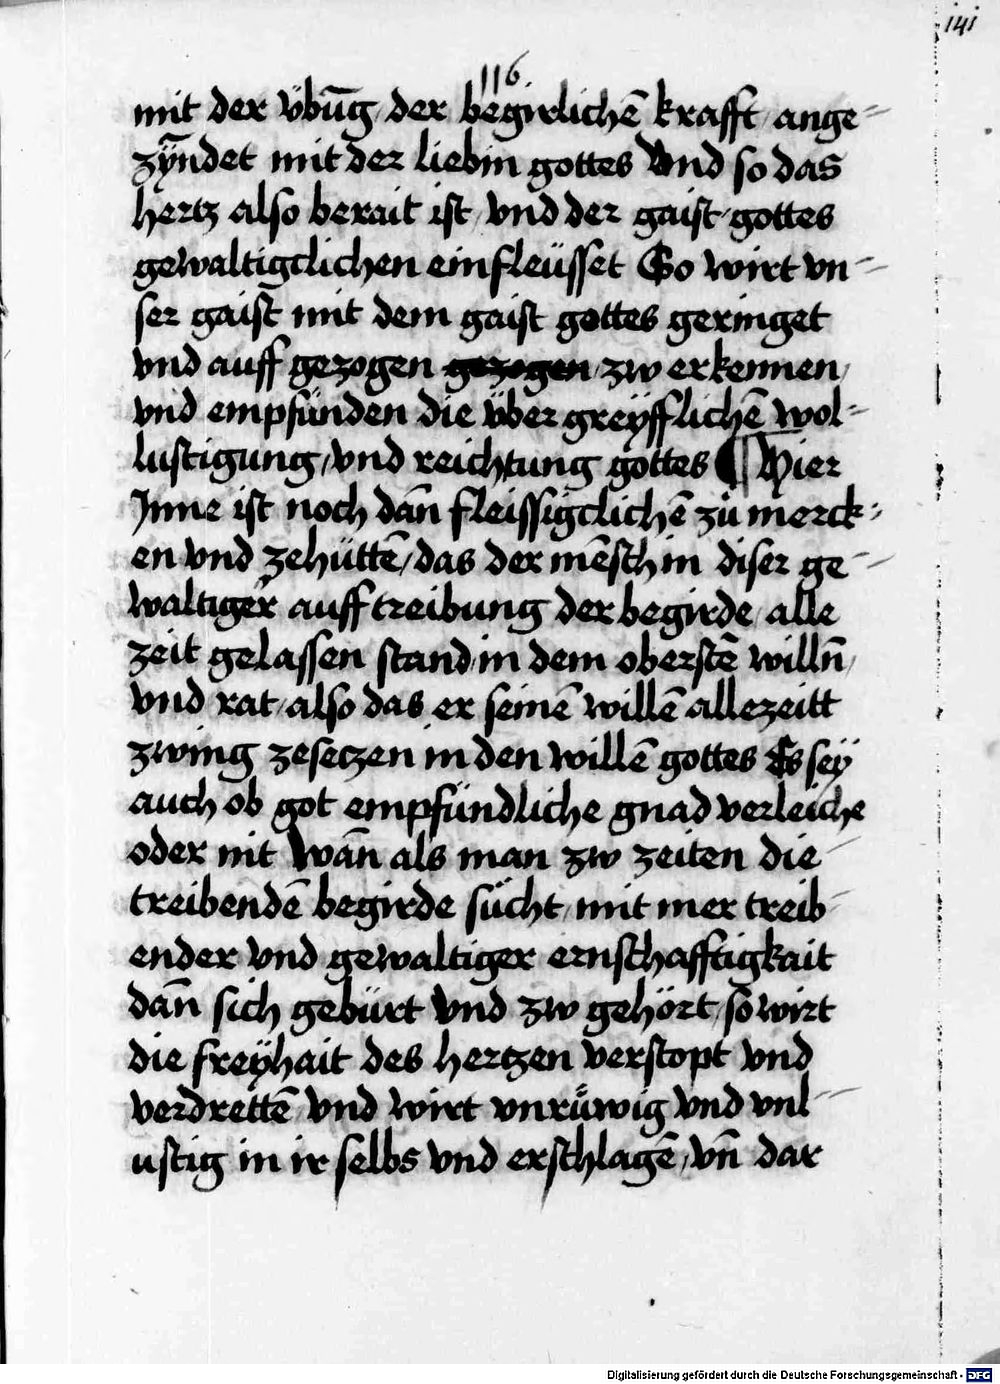 141
116.
mit der v̈būg / der begirlichē krafft / ange-
zÿndet mit der liebin gottes Vnd so das
hertz also berait ist / vnd der gaist gottes
gewaltigclichen einfleüsset So wirt vn-
ser gaist mit dem gaist gottes geringet
vnd auff gezogen gezogen zw erkennen /
vnd empfünden die v̈ber greÿfflichē wol-
lustigung / vnd reichtung gottes ¶ Hier
Inne ist noch dañ fleissigclichē zů merck-
en vnd zehüttē / das der mēsch in diser ge-
waltiger auff treibung der begirde / alle
zeit gelassen stand / in dem oberstē willn̄ /
vnd rat / also das er seinē willē allezeitt
zwing zesetzen in den willē gottes Es seÿ
auch ob got empfündliche gnad verleiche
oder nit Wan̄ als man zw zeiten die
treibendē begirde sücht / mit mer treib-
ender vnd gewaltiger ernschafftigkait
dan̄ sich gebürt vnd zw gehört / so wirt
die freÿhait des hertzen verstopt vnd
verdrettē vnd wirt vnrůwig vnd vnl-
ustig in ir selbs vnd erschlagē / vn̄ dar
Digitalisierung gefördert durch die Deutsche Forschungsgemeinschaft - DFG